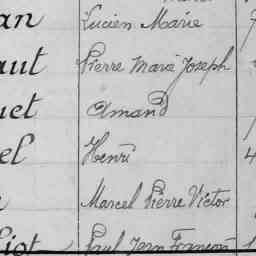 an Lucien Marie
aut Pierre Marie Joseph
uet Amand
el Henri 4
Marcel Pierre Victor
Paul Jean François